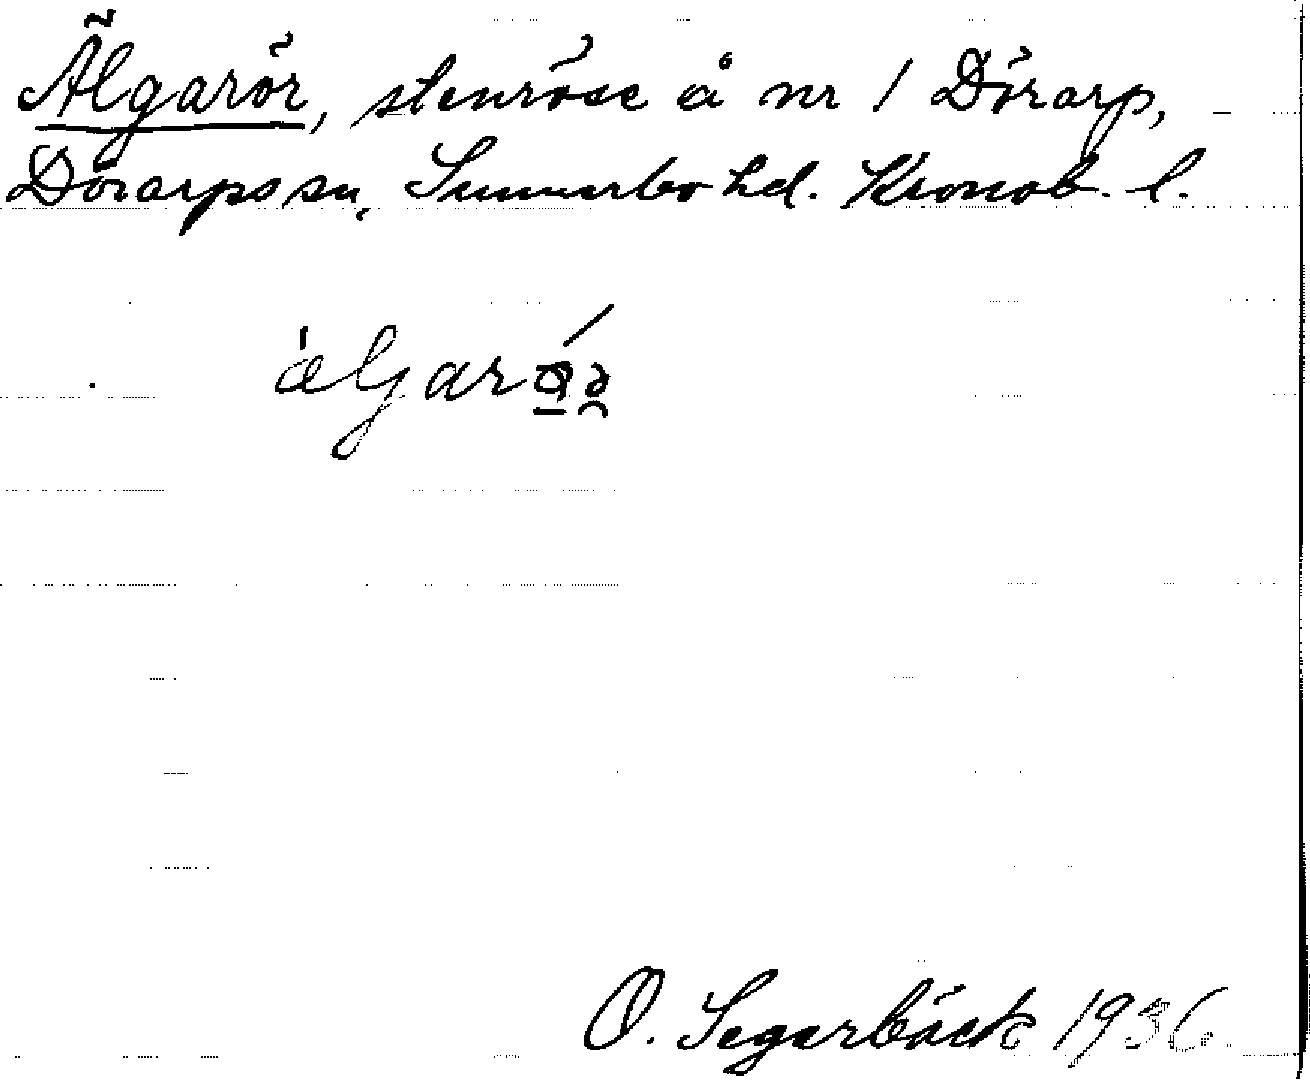 Älgarör, stenröse å nr 1 Dörarp,
Dörarps sn, Sunnerbo hd. Kronob. l.
O. Segerbäck 1936